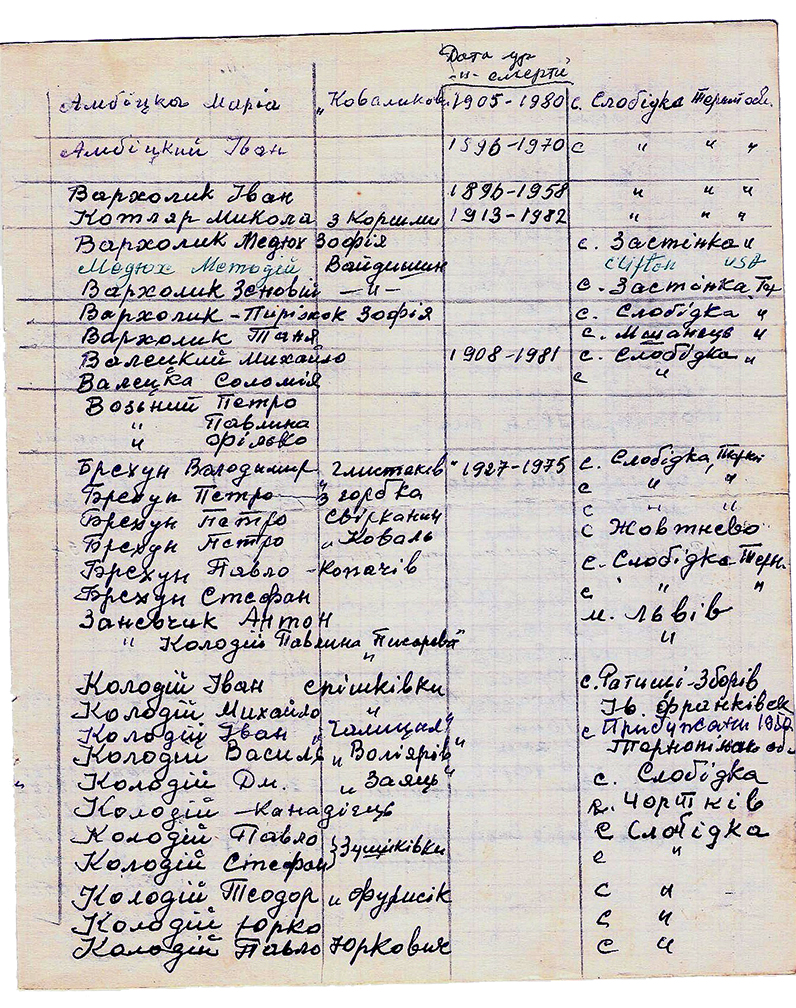 Дата ур
-"- смерти
Амбіцка Марія „Коваликов. 1905-1980 с. Слобідка Терноп обл.
Амбіцкий Іван 1896-1970 с " " "
Вархолик Іван 1896-1958 " " "
Котляр Микола з Коршми 1913-1982 " " "
Вархолик Медюх Зофія с. Застінка "
Медюх Методій Вайдишин Clifton USA
Вархолик Зеновій -"- с. Застінка Тер
Вархолик - Пиріжок Зофія с. Слобідка "
Вархолик Таня с. Мшанець "
Валецкий Михайло 1908-1981 с. Слобідка "
Валецка Соломія с "
Возьний Петро
" Павлина
" Філько
Брехун Володимир „Глистаків" 1927-1975 с. Слобідка,
Брехун Петро - з горбка с " "
Брехун Петро Свіркачин " "
Брехун Петро „Коваль с Жовтнево
Брехун Павло - копачів с. Слобідка Терн.
Брехун Стефан с " " "
Заневчик Антон м. Львів
" Колодій Павлина Писарева" "
Колодій Іван Єрішківки с. Ратищі-Зборів
Колодій Михайло " Ів. Франківск
Колодій Іван „Галиция" с Прибужани
Колодій Василь „Воліярів" обл.
Колодій Дм. „Заяць" с. Слобідка
Колодій - Канадієць Чортків
Колодій Павло } Зуциківки с Слобідка
Колодій Стефан с "
Колодій Теодор „Фурисік с "
Колодій Юрко с "
Колодій Павло Юркович с "